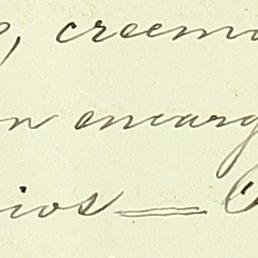 , creemo
n encarg
ios —